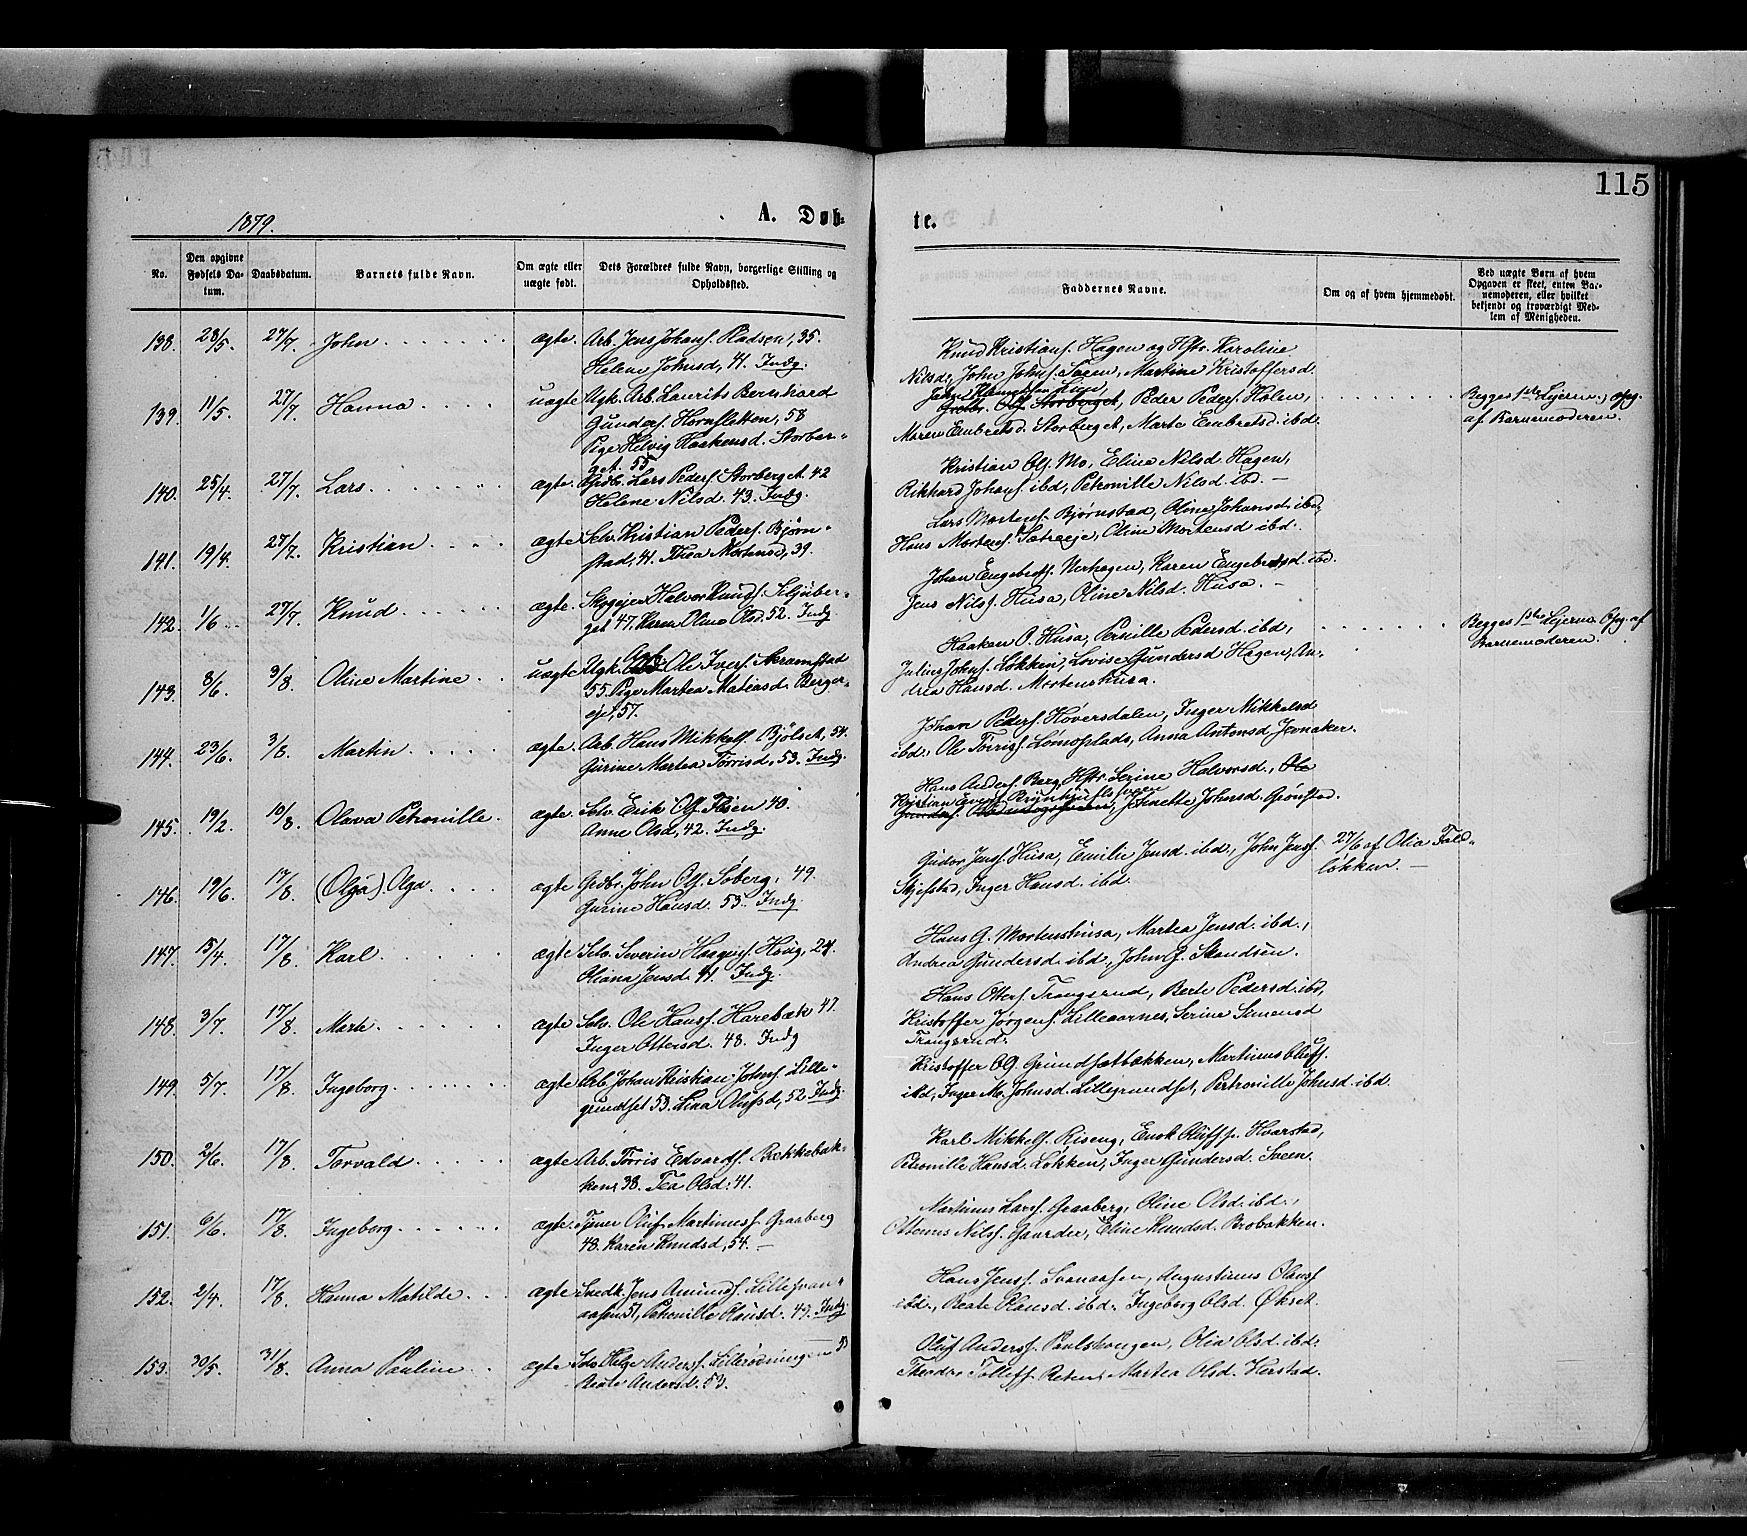 115
1879.
A. Døb-
te.
No.
Den opgivne Fødsels Da-tum.
Daabsdatum.
Barnets fulde Navn.
Om ægte eller uægte født.
Dets Forældres fulde Navn, borgerlige Stilling og Opholdssted.
Faddernes Navne.
Om og af hvem hjemmedøbt.
Ved uægte Børn af hvem Opgaven er skeet, enten Bar-nemoderen, eller hvilket bekjendt og troværdigt Med-lem af Menigheden.
138. 28/5. 27/7. John ægte. Arb. Jens Johans. Pladsen, 35.
Helene Johnsd, 41. Indg.
Knud Kristians. Hagen og Hstr. Karoline
Nilsd., John Johns. Sveen, Martine Kristoffersd.
139. 11/5. 27/7. Hanna uægte Ugk. Arb. Laurits Bernhard
Gunders. Hornsletten, 58
Pige Helvig Haakensd. Storber-
get. 55
Peder Peders. Holen,
Maren Embretsd. Storberget, Marte Embretsd. ibd.
Begges 1ste Lejerm., opg.
af Barnemoderen.
140. 25/4. 27/7. Lars ægte. Grdb. Lars Peders. Storberget. 42
Helene Nilsd. 43. Indg.
Kristian Ols. Mo, Eline Nilsd. Hagen,
Rikhard Johans. ibd, Petronille Nilsd. ibd. —
141. 19/4. 27/7. Kristian ægte Selv. Kristian Peders. Bjørn-
stad, 41. Thea Mortensd, 39.
Lars Mortens. Bjørnstad, Oline Johansd. ibd,
Hans Mortens. Sætraeje, Oline Mortensd ibd.
142. 1/6 27/7. Knud ægte. Skogejer Halvor Knuds. Siljuber-
get 47, Karen Oline Olsd. 52. Indg
Johan Engebrets. Nerhagen, Karen Engebretsd. ibd.
Jens Nils. Husa, Oline Nilsd. Husa. —
143. 8/6. 3/8. Oline Martine uægte Ugk. Ole Ivers. Skramstad
55. Pige Martea Matiasd. Berger-
eje, 57.
Haaken O. Husa, Pernille Pedersd. ibd,
Julius Johns. Løkken, Lovise Gundersd Hagen, An-
drea Hansd. Mortenshusa.
Begges 1ste Lejerm. Opg. af
Barnemoderen.
144. 23/6. 3/8. Martin ægte Arb. Hans Mikkels. Bjølset, 54.
Gurine Martea Tørrisd, 53. Indg.
Johan Peders. Høversdalen, Inger Mikkelsd
ibd. Ole Tørriss. Lomoplads, Anna Antonsd Jevnaker.
145. 19/2. 10/8. Olava Petronille. ægte. Selv. Erik Ols. 40.
Anne Olsd, 42. Indg.
Hans Anders. Berg, Hstr. Serine Halvorsd.,
Jonette Johnsd. Grønstad.
146. 19/6. 17/8. (Olga) Olga ægte Grdbr. John Ols. Søberg, 49.
Gurine Hansd. 53. Indg.
Gudor Jens. Husa, Emilie Jensd. ibd., John Jens.
Skjefstad, Inger Hansd. ibd.
27/6 af Olia Fald-
løkken. —
147. 15/4. 17/8. Karl ægte Selv. Severin Haagens. Haug, 24.
Oliana Jensd. 41. Indg.
Hans G. Mortenshusa, Martea Jensd. ibd.,
Andrea Gundersd. ibd, John G. Skandsen.
148. 3/7. 17/8. Marte ægte Selv. Ole Hans. Harebæk 47.
Inger Ottersd. 48. Indg
Hans Otters. Trangsrud, Berte Pedersd. ibd,
Kristoffer Jørgens. Lilleaarnes, Serine Simensd
Trangsrud.
149. 5/7. 17/8. Ingeborg ægte Arb. Johan Kristian Johns. Lille-
grundset 53. Lina Olufsd, 52 Indg.
Kristoffer O. Grundsætbækken, Martinus Olufs.
ibd, Inger M. Johnsd. Lillegrundset, Pertronille Johnsd. ibd.
150. 2/6. 17/8. Torvald ægte Arb. Tørris Edvards. Bækkebak-
ken, 38. Tea Olsd. 41.
Karl Mikkels. Riseng, Enok Olufs. Hvarstad,
Petronille Hansd. Løkken, Inger Gundersd. Sveen.
151. 6/6. 17/8. Ingeborg ægte. Tjener Oluf Martinus. Graaberg
48. Karen Knudsd, 54. —
Martinus Lars. Graaberg, Oline Olsd. ibd.,
Ottenus Nils. Gaarder, Eline Knudsd. Brobakken.
152. 2/4. 17/8. Hanna Matilde ægte Snedk. Jens Amunds. Lillesvan-
aasen 51, Petronille Hansd. 49. Indg.
Hans Jens. Svanaasen, Augustinus Olaus.
ibd., Beate Hansd. ibd., Ingeborg Olsd. Økset.
153. 30/5. 31/8. Anna Pauline ægte Selv. Helge Anders. Lillerødningen 53
Beate Andersd. 53.
Oluf Anders. Paulshaugen, Olia Olsd. ibd.
Theodor Tollefs. Reten, Martea Olsd. Herstad.